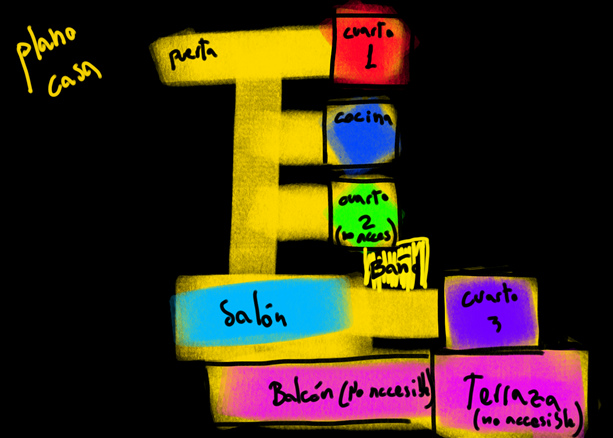 plano
casa
puerta
cuarto
1
cocina
cuarto
2
(no acces)
Bañ
Salón
cuarto
3
Balcón (No accesible)
Terraza
(no accesible)